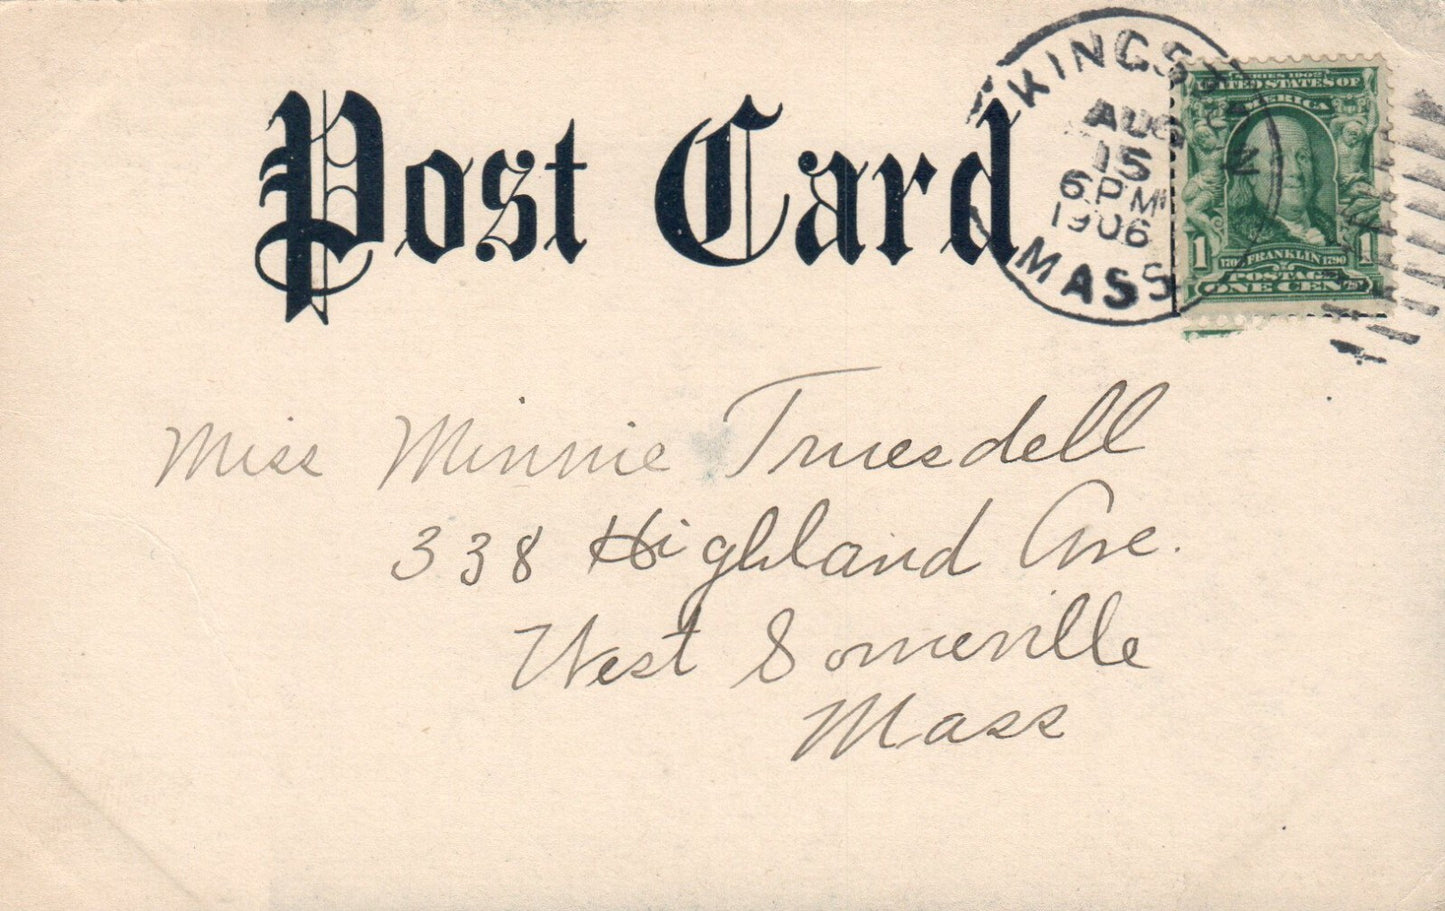 Post Card
KINGSTON
AUG
15
6 PM
1906
MASS
SERIES 1902
UNITED STATES OF
AMERICA
1 1
FRANKLIN 1790
POSTAGE
ONE CENT
Miss Minnie Truesdell
338 Highland Ave.
West Somerville
Mass